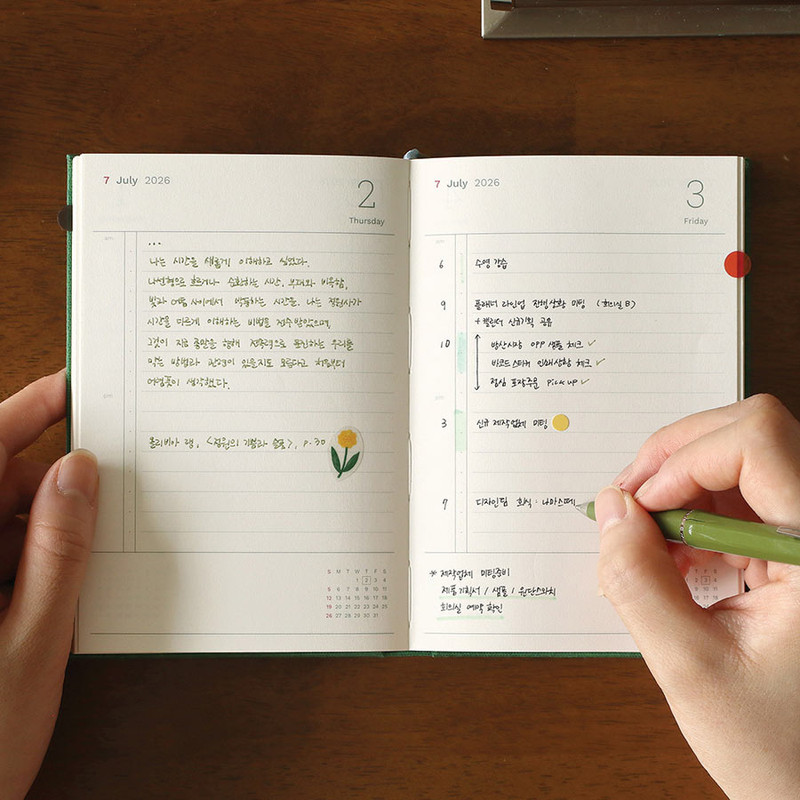 7 July 2026
2
Thursday
...
나는 시간을 새롭게 이해하고 싶었다.
나선형으로 흐르거나 순환하는 시간, 부재와 비움함,
밤과 여름 사이에서 박동하는 시간을. 나는 정원사가
시간을 다르게 이해하는 비법을 전수받았으며,
그것이 지금 종말을 향해 전속력으로 돌진하는 우리를
막는 방법과 관련이 있을지도 모른다고 처음부터
어렴풋이 생각했다.
올리비아 랭, <정원의 기쁨과 슬픔>, p.30
S M T W T F S
1 2 3 4
5 6 7 8 9 10 11
12 13 14 15 16 17 18
19 20 21 22 23 24 25
26 27 28 29 30 31
7 July 2026
3
Friday
6 수영 강습
9 플래너 라인업 진행상황 미팅 (회의실 B)
+ 캘린더 신규기획 공유
10 방산시장 OPP 샘플 체크 ✓
바코드스티커 인쇄상황 체크 ✓
점심 포장주문 Pick up ✓
3 신규 제작업체 미팅
7 디자인팀 회식 : 나마스떼
* 제작업체 미팅준비
제품기획서 / 샘플 / 원단스와치
회의실 예약 확인